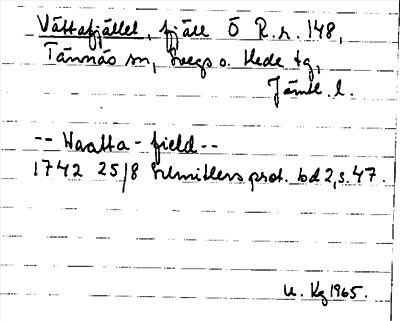 Våttafjället, fjäll Ö R.r. 148,
Tännäs sn, Svegs o. Hede tg,
Jämtl. l.
-- Waatta - field --
1742 25/8 Schnitlers prot. bd 2, s. 47.
U. Kg 1965.